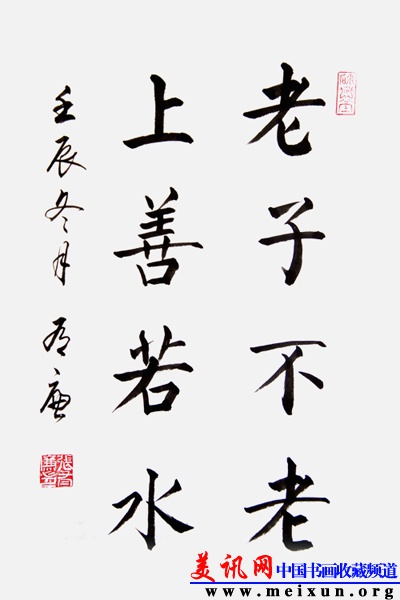 老子不老
上善若水
壬辰冬月
美讯网 中国书画收藏频道
www.meixun.org